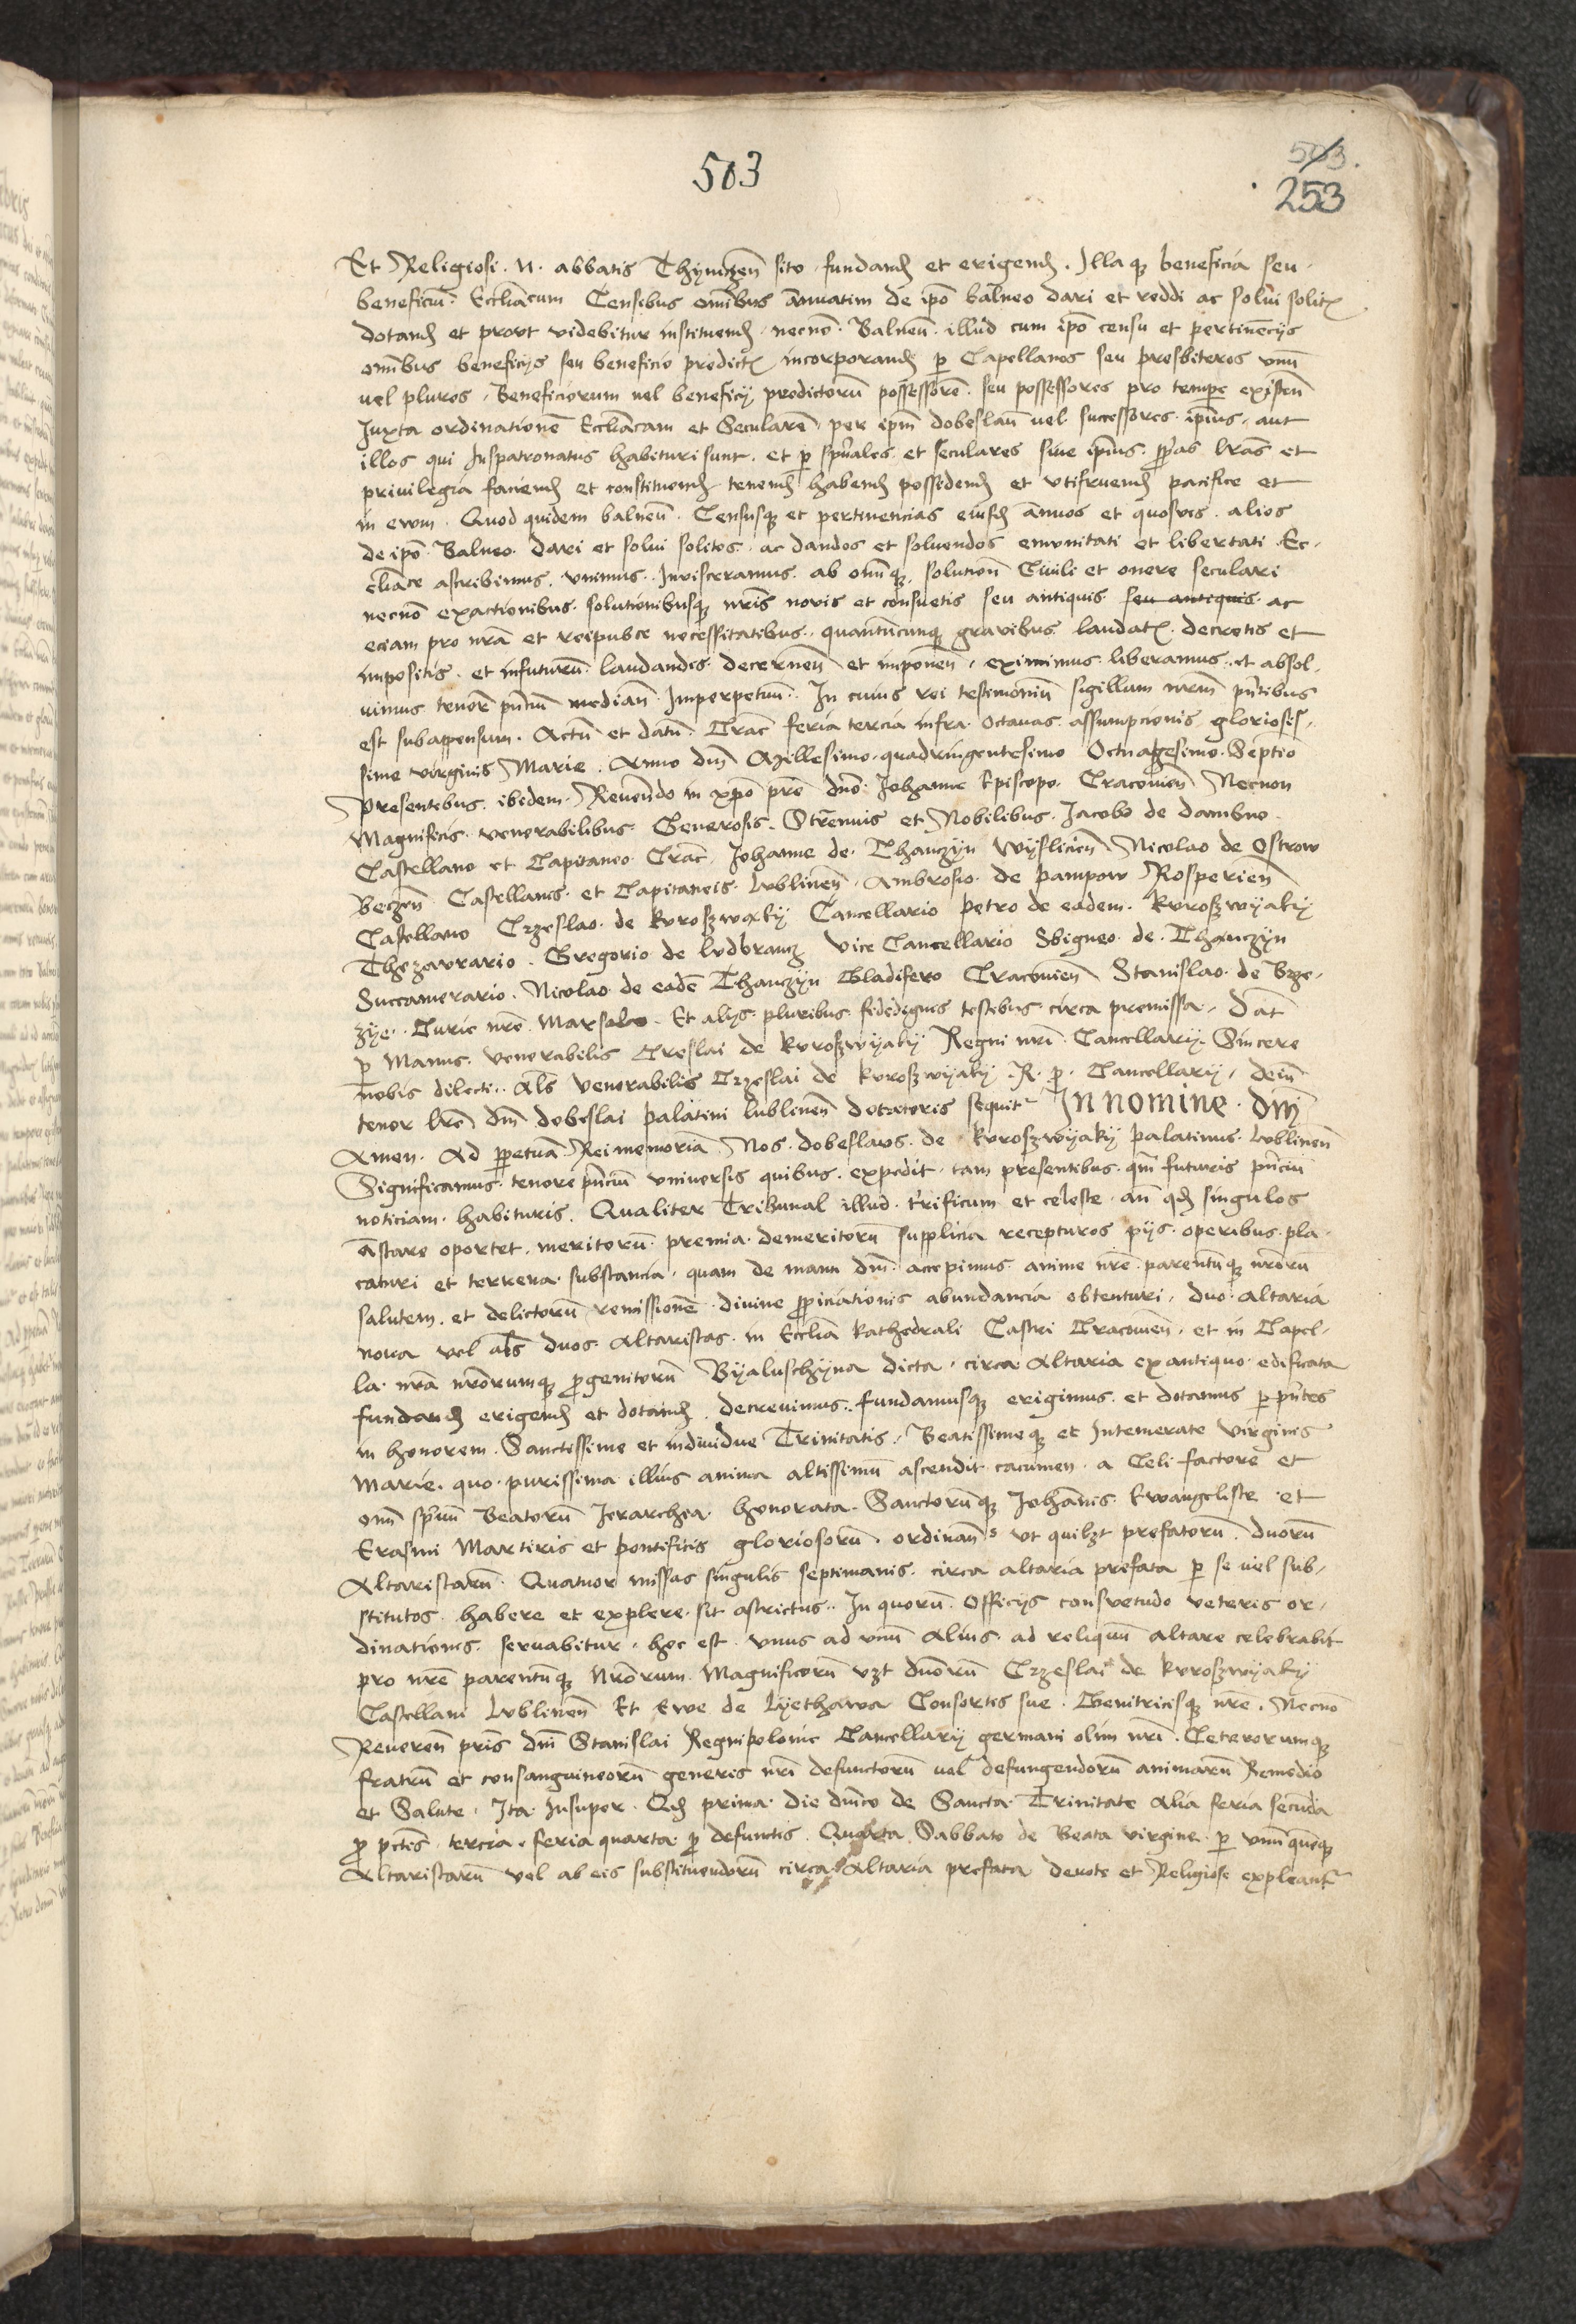 503
503.
253
Et Religiosi. N. abbatis Thynczeñ sito fundand et erigend. Illaqꝫ beneficia seu
beneficiū. Eccliācum Censibus om̄ibus āniuatim de ip̄o balneo dari et reddi ac solui solitꝭ
dotand et prout videbitur instituend necnō Balneū illud cum ip̄o censu et pertinēcijs
om̄ibus beneficijs seu beneficio predictꝭ incorporand ꝑ Capellanos seu presbiteros vnū
uel plures. Beneficiorum uel beneficij predictorū possessorē seu possessores pro tempe existeñ
Juxta ordinationē Eccliācam et Secularē per ip̄m dobeslaū uel successores ip̄ius aut
illos qui Juspatronatus habituri sunt. et ꝑ sp̄uales et seculares siue ip̄ius ꝓp̄as l̄ras et
privilegia faciend et constituend tenend habend possidend et vtifruend pacifice et
in ewm. Quod quidem balneū. Censusqꝫ et pertinencias eiusd ānuos et quosvis alios
de ip̄o Balneo dari et solui solitos ac dandos et soluendos emunitati et libertati Ec-
cliāce ascribimus. vnimus. Invisceramus ab om̄iqꝫ solutioñ Civili et onere seculari
necnō exactionibus solutionibusqꝫ nr̄is novis et consuetis seu antiquis seu antiquis ac
eciam pro nrā et reipub̄ce necessitatibus quantūcunqꝫ gravibus laudatꝭ decretis et
impositis. et infuturū laudandis decerneñ et imponeñ eximimus liberamus et absol-
uimus tenorē pn̄ciū mediañ Imperpetuū. In cuius rei testimoniū sigillum nrm̄ pn̄tibus
est subappensum. Actū et datū Crac̄ feria tercia infra octauas assumpcionis gloriosis-
sime virginis Marie. Anno dm̄ Millesimo quadringentesimo Octuagesimo Septīo
presentibus ibidem Reuendo in xp̄o pr̄e dn̄o Johanne Episcopo Cracouieñ Necnon
Magnificis venerabilibus Generosis Strennuis et Nobilibus Jacobo de dambno
Castellano et Capitaneo Crac̄ Johanne de Thanczyn Wyslicieñ Nicolao de Ostrow
Beczeñ Castellanis et Capitaneis Lublineñ Ambrosio de pampow Rosperieñ
Castellano Crzeslao de kuroszwaky Cancellario petro de eadem kuroszwyaky
Thezaurario. Gregorio de ludbrancz Vice Cancellario Sbigneo de Thanczyn
Succamerario. Nicolao de eadē Thanczyn Gladifero Cracouieñ Stanislao de Brze-
zye Curie nrē Marsalco Et alijs pluribus fidedignis testibus circa premissa. Dat̄
ꝑ Manus venerabilis Creslai de kuroszwyaky Regni nrī Cancellarij Sincere
nobis dilecti. Als̄ venerabilis Crzeslai de kuroszwyaky R. p. Cancellarij, deiñ
tenor l̄rē dm̄ dobeslai palatini lublineñ dotatoris sequit̄ In nomine dm̄
Amen. Ad ꝑpetuā Rei memoriā Nos dobeslaus de kuroszwyaky palatinus lublineñ
Significamus tenore pn̄ciū vniuersis quibus expedit tam presentibus qm̄ futuris pn̄ciū
noticiam habituris. Qualiter Tribunal illud trificum et celeste añ qd singulos
āstare oportet meritorū premia demeritorū supplicia recepturos pijs operibus pla-
caturi et terrena substancia quam de manu dm̄ accepimus anime nrē parentūqꝫ nrōru
salutem et delictorū remissionē divine ꝓpiciationis abundancia obtenturi, duo altaria
noua vel als̄ duos Altaristas in Eccliā kathedrali Castri Cracouieñ et in Capel-
la nrā nrōrumqꝫ ꝓgenitorū Byaluschyna dicta circa Altaria ex antiquo edificata
fundand erigend et dotand decreuimus fundamusqꝫ erigimus et dotamus ꝑ pn̄tes
in honorem Sanctissime et individue Trinitatis. Beatissimeqꝫ et Intemerate virginis
Marie quo purissima illius anima altissimū ascendit cacumen a Celi factore et
om̄i sp̄uū Beatorū Jerarchea honorata Sanctorūqꝫ Johānis Ewangeliste et
Erasmi Martiris et pontificis gloriosorū ordinañs vt quilꝫt prefatorū duorū
Altaristarū Quatuor missas singulis septimanis circa altaria prefata ꝑ se uel sub-
stitutos habere et explere sit astrictus. In quorū Officijs consvetudo veteris or-
dinationis seruabitur hoc est vnus ad vnū Alius ad reliquū altare celebrabit
pro nrē parentūqꝫ Nrōrum Magnificorū vꝫt duōrū Crzeslai de kuroszwyaky
Castellani lublineñ Et Ewe de lyethawa Consortis sue Genitricisqꝫ nrē. Necnō
Reuereñ pr̄is dm̄ Stanislai Regni polonie Cancellarij germani olim nrī Ceterorumqꝫ
fratrū et consanguineorū generis nrī defunctorū uel defungendorū animarū Remedio
et Salute. Ita Insuper Qd prima die dn̄ico de Sancta Trinitate Alia feria secunda
ꝓ pctīs tercia feria quarta ꝓ defunctis Quarta Sabbato de Beata virgine ꝑ vnūquēqꝫ
Altaristarū vel ab eis substituendorū circa Altaria prefata deuote et Religiose expleant̄